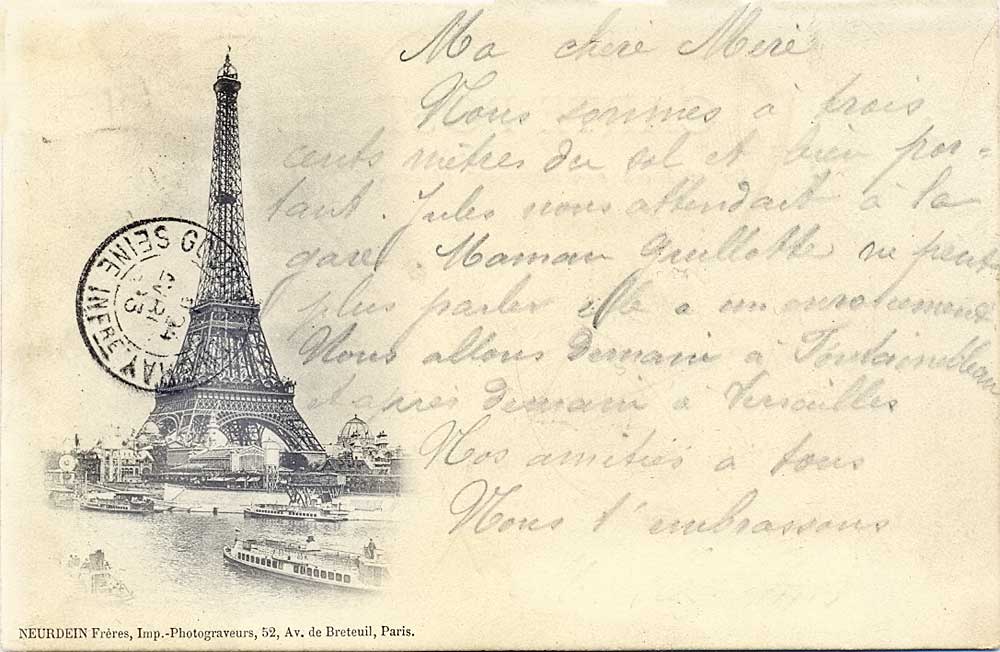 Ma chere Mère
Nous sommes à trois
cents mètres du sol et bien por-
tant. Jules nous attendait à la
gare. Maman Guillotte ne peut
plus parler elle a un
Nous allons demain à Fontainebleau
et après demain à Versailles
Nos amitiés a tous
Nous t'embrassons
SEINE INFRE
NEURDEIN Frères, Imp.-Photograveurs, 52, Av. de Breteuil, Paris.